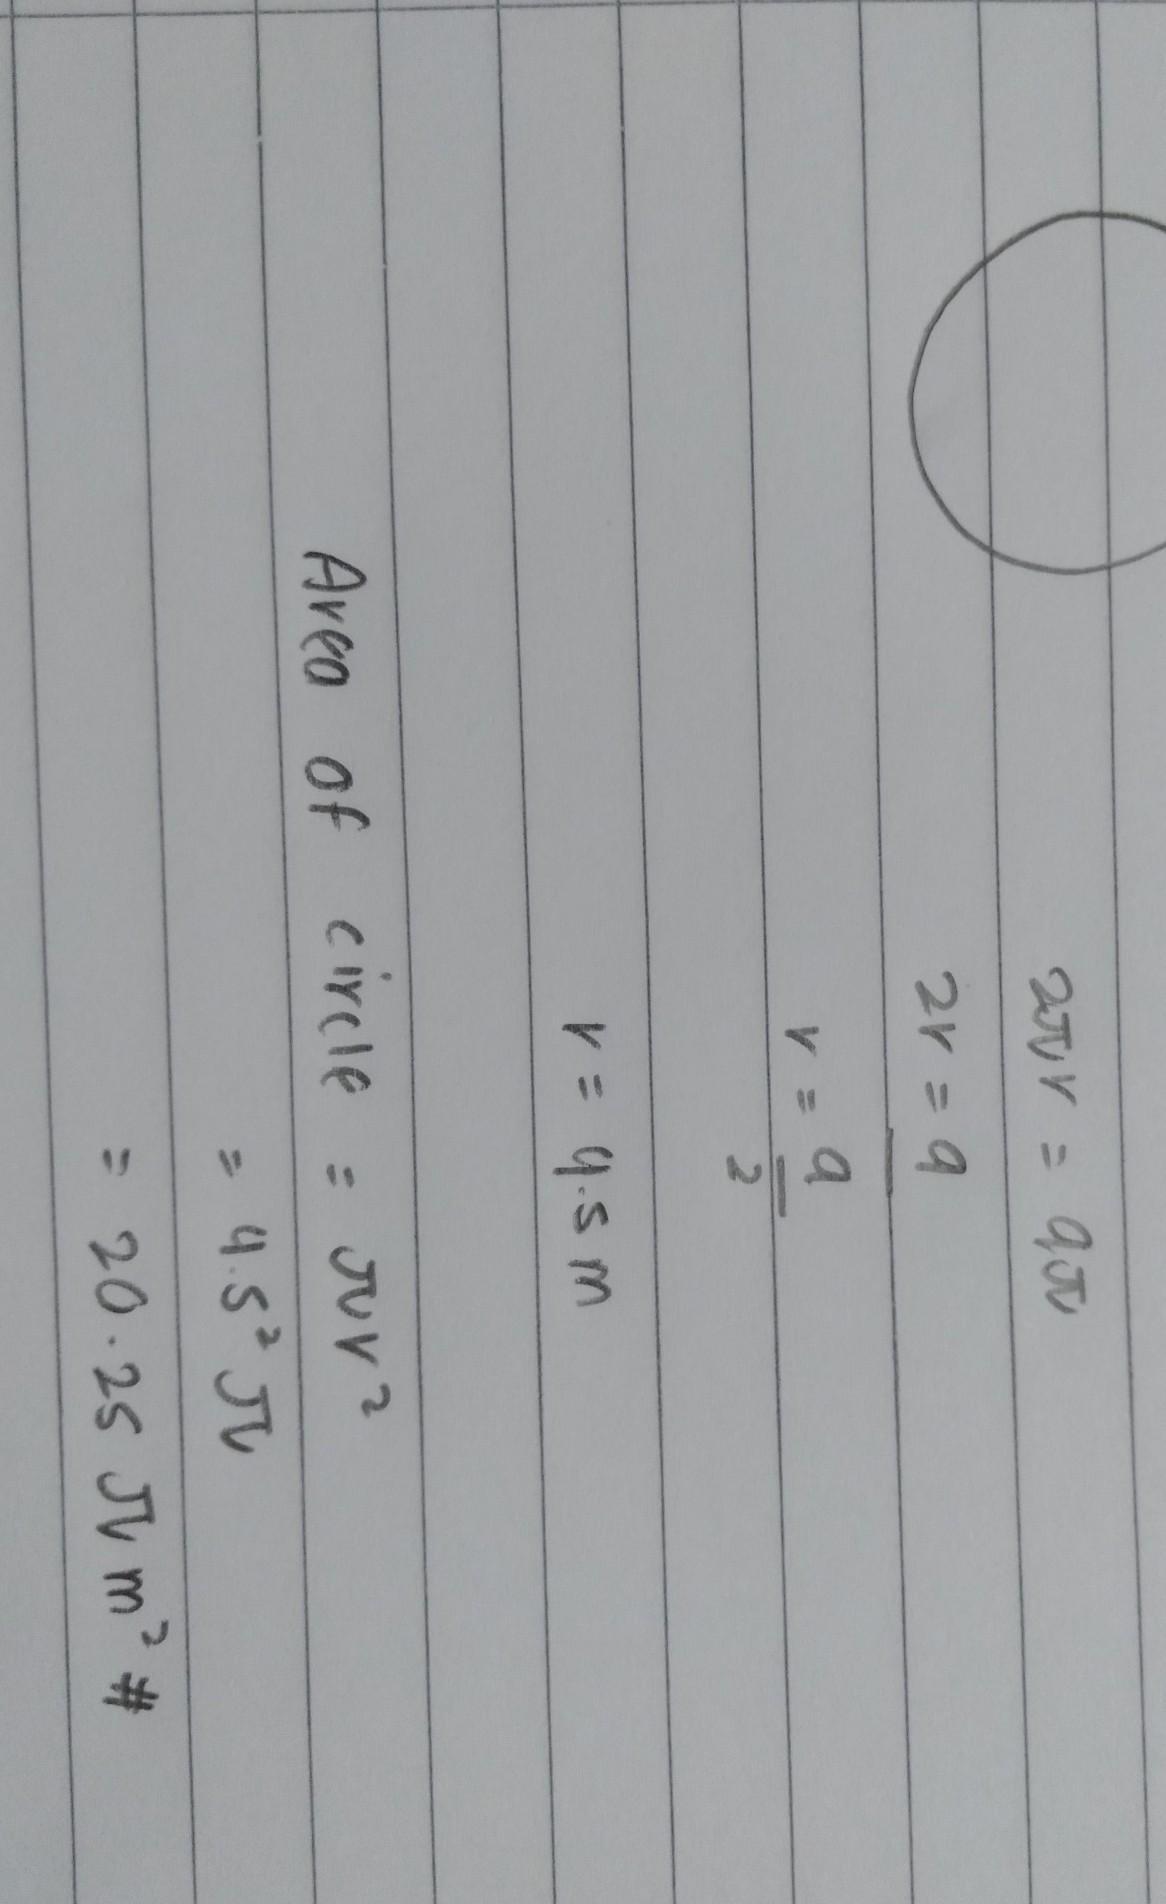 2πr = 9π
2r = 9
r = 9/2
r = 4.5 m
Area of circle = πr²
= 4.5² π
= 20.25 π m² #